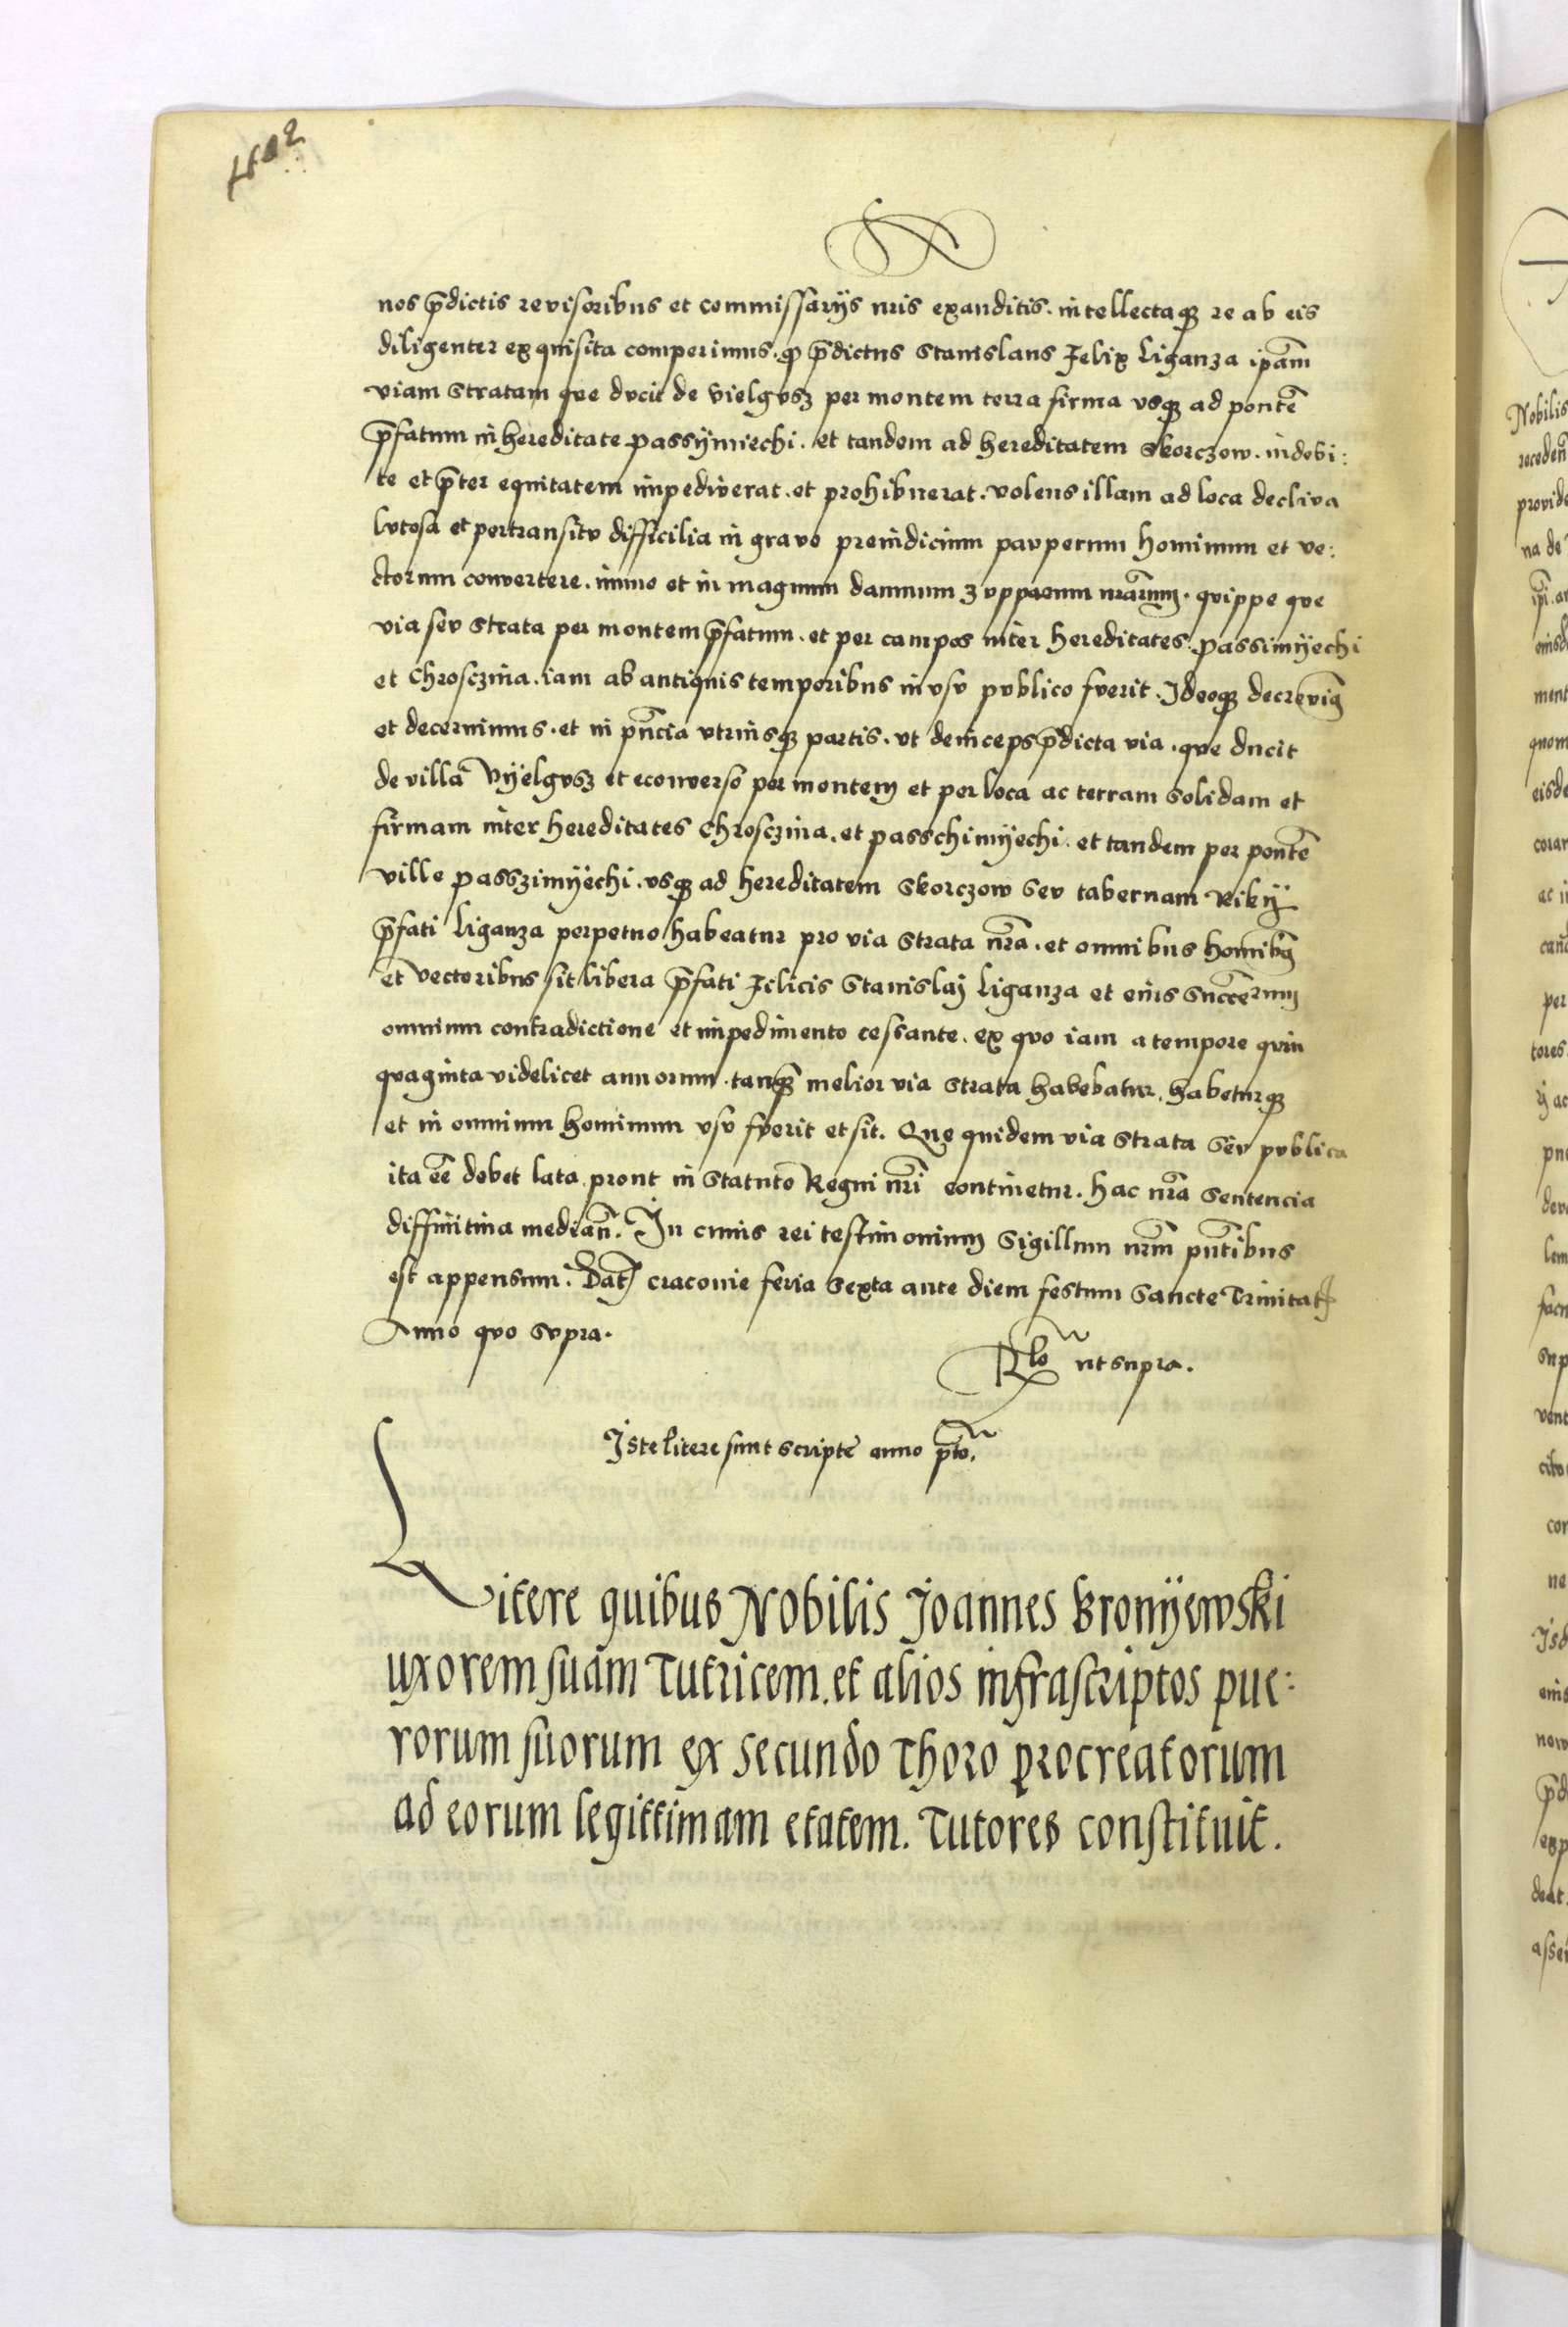 nos p̄dictis revisoribus et commissarijs nr̄is exauditis. intellectaqȝ re ab eis
diligenter exquisita comperimus. qȝ p̄dictus Stanislaus Felix Liganza ip̄am
viam stratam que ducit de Vielgusz per montem terra firma usqȝ ad pontē
p̄fatum in hereditate Passijmiechi. et tandem ad hereditatem Skorczow. indebi:
te et p̄ter equitatem impediverat. et prohibuerat. volens illam ad loca decliva
lutosa et pertransitu difficilia in grave preiudicium pauperum hominum et ve:
ctorum convertere. immo et in magnum damnum zupparum nr̄arum. quippe que
via seu strata per montem p̄fatum. et per campos inter hereditates Passimijechi
et Chrosczina. iam ab antiquis temporibus in usu publico fuerit. Ideoqȝ decrevimꝯ
et decernimus. et in pn̄cia utriusqȝ partis. ut deinceps p̄dicta via. que ducit
de villa Vijelgusz et econverso per montem et per loca ac terram solidam et
firmam inter hereditates Chrosczina. et Passchimijechi. et tandem per pontē
ville Passzimijechi. usqȝ ad hereditatem Skorczow seu tabernam Rikij
p̄fati Liganza perpetuo habeatur pro via strata nr̄a. et omnibus hominibꝯ
et vectoribus sit libera p̄fati Felicis Stanislaj Liganza et eius succē̄rum
omnium contradictione et impedimento cessante. ex quo iam a tempore quin
quaginta videlicet annorum. tanqȝ melior via strata habebatur. habeturqȝ
et in omnium hominum usu fuerit et sit. Que quidem via strata seu publica
ita ēē debet lata prout in statuto Regni nr̄i continetur. hac nr̄a sentencia
diffinitiva median̄. In cuius rei testimonium Sigillum nr̄m pn̄tibus
est appensum. Dat̄ Cracovie feria sexta ante diem festum Sancte Trinitatꝭ
Anno quo supra.
Rlō ut supra.
Iste litere sunt scripte anno p̄to.
Litere quibus Nobilis Joannes Bronijewski
uxorem suam Tutricem. et alios infrascriptos pue:
rorum suorum ex secundo Thoro procreatorum
ad eorum legittimam etatem. Tutores constituit.